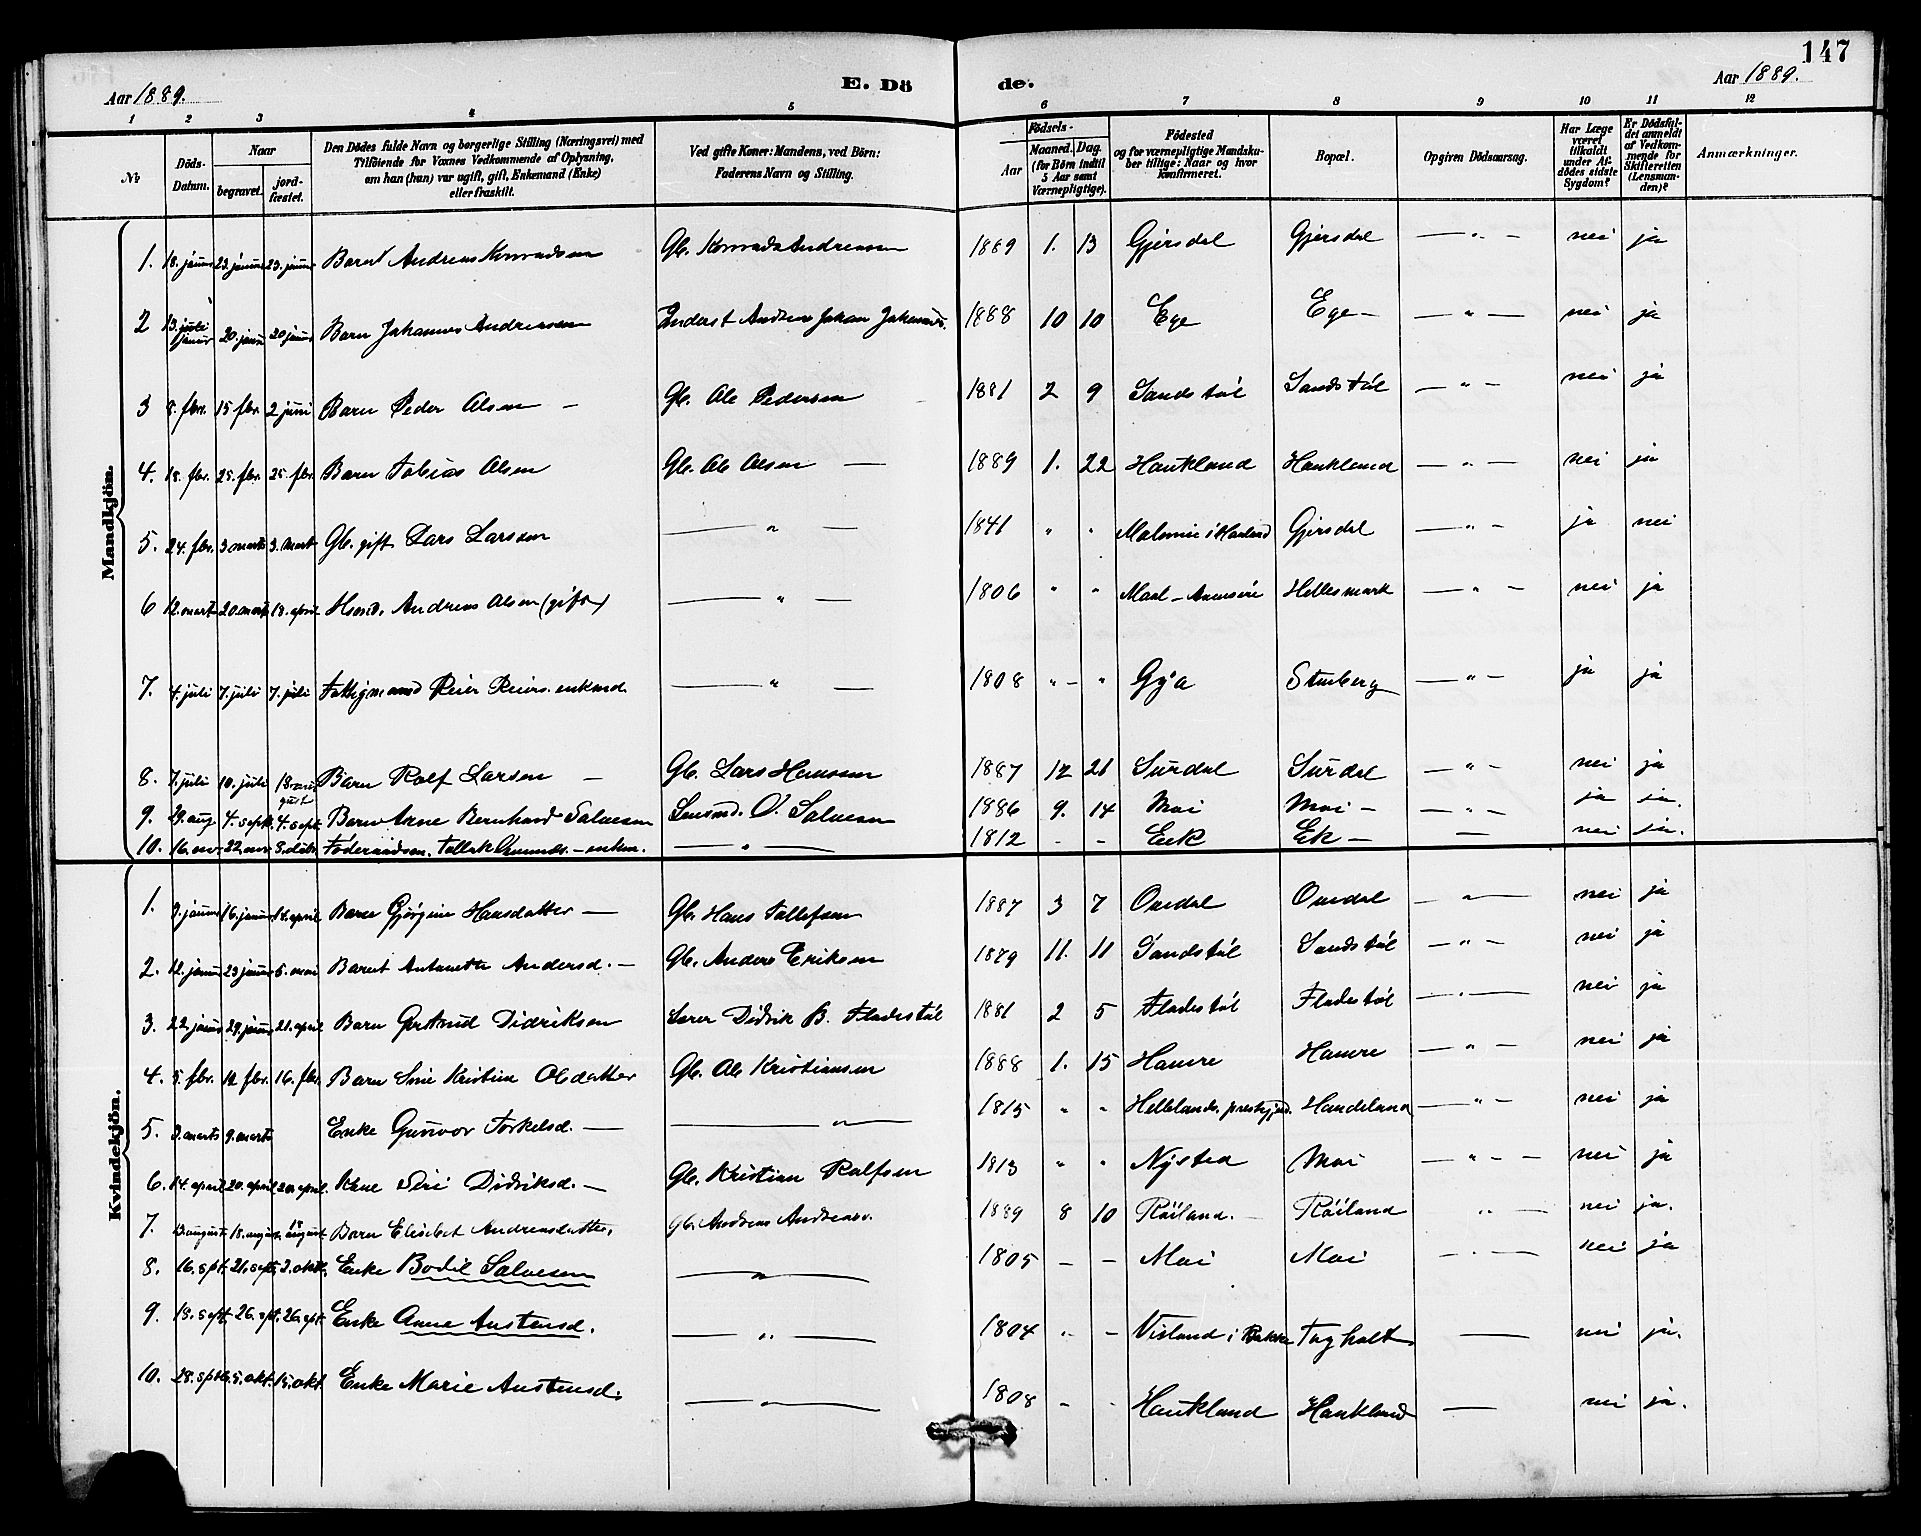 147
Aar 1889. E. Dö de. Aar 1889.
1 2 3 4 5 6 7 8 9 10 11 12
№ Döds-Datum. Naar begravet. jordfæstet. Den Dödes fulde Navn og borgerlige Stilling (Næringsvei) med Tilföiende for Voxnes Vedkommende af Oplysning, om han (hun) var ugift, gift, Enkemand (Enke) eller fraskilt. Ved gifte Koner: Mandens, ved Börn: Faderens Navn og Stilling. Födsels- Aar Maaned. Dag. (for Börn indtil 5 Aar samt Værnepligtige). Födested og for værnepligtige Mandskaber tillige: Naar og hvor konfirmeret. Bopæl. Opgiven Dödsaarsag. Har Læge været tilkaldt under Afdödes sidste Sygdom? Er Dödsfaldet anmeldt af Vedkommende for Skifteretten (Lensmanden)? Anmærkninger.
Mandkjön.
1. 18. januar 23. januar 23. januar Barn Andreas Konradsen Gb. Konrad Andreassen 1889 1. 13 Gjersdal Gjersdal — " — nei ja
2 13. januar 20. janu 20 janu Barn Johannes Andreassen Inderst Andreas Johan Johannes. 1888 10 10 Ege Ege — — " — nei ja
3 8. fbr. 15 fbr. 2 juni Barn Peder Olsen — Gb. Ole Pedersen 1881 2 9 Sandstöl Sandstöl — " — nei ja
4. 18. fbr. 25. fbr. 25. fbr Barn Tobias Olsen Gb. Ole Olsen — 1889 1. 22 Haukland Haukland — " — nei ja
5. 24. fbr. 3 marts 3. mart Gb. gift Lars Larsen — " — 1841 " " i Gjersdal — " — ja nei
6 12. marts 20. marts 13. april Husmd. Andreas Olsen (gift) — " — 1806 " " Hellesmark — " — nei ja
7. 4. juli 7. juli 7. juli Fattigmand Peier enkmd. — " — 1808 " — " Gya Stenberg — " — ja ja
8. 7. juli 10. juli 18. august Barn Rolf Larsen — Gb. Lars Hansen 1887 12 21 Surdal Surdal — " — nei ja
9. 29. aug 4. sept. 4. sept. Barn Arne Bernhard Salvesen Lensmd. O. Salvesen 1886 9. 14 Moi Moi — — " — ja ja.
10. 16. nov. 22. nov. 8. dcbr. Föderaadsm. Tollak — enkm. — " — 1812 - - Eek Ek — — nei ja.
Kvindekjön.
1. 9. januar 16. januar 18. april Barn Gjörgine Hansdatter — Gb. Hans Tollefsen 1887 3 7 Ouedal Ouedal — " — nei ja
2. 12. januar 23 januar 5. mai Barn Antonette Andersd. — Gb. Anders Eriksen 1879 11. 11 Sandstöl Sandstöl — " — nei ja
3. 22. januar 29. januar 21. april Barn Gertrud Didriksen Lærer Didrik B. Fladestöl 1881 2 5 Fladestöl Fladestöl — " — nei ja
4. 5. fbr. 12 fbr. 16. fbr. Barn Sine Kristine Olsdatter Gb. Ole Kristiansen 1888 1. 15 Hamre Hamre — " — nei ja
5. 3. marts 9. marts Enke Gunvor Torkelsd. — — " — 1815 " " Hellelands prestgjd. Haudeland — " — nei ja
6. 14. april 20. april 20. april. Kone Siri Didriksd. — Gb. Kristian Rolfsen 1813 " " Nysted Moi — " — — nei ja
7. 13. august 18. august 18 august Barn Elisabet Andreasdatter. Gb. Andreas Andreasn. 1889 8 10 Röiland. — Röiland " — nei ja.
8. 16. spt. 21. sept. 2. okt. Enke Bodil Salvesen — " — 1805 — — Moi Moi — " — nei ja
9. 18. sept. 26. spt. 26. spt. Enke Anne Austensd. — " — 1804 " — Visland i Bakke Fogholt — nei ja.
10. 28. spt. 5. okt. 15. okt. Enke Marie Austensd. — " — 1808 - - Haukland Haukland — nei ja.